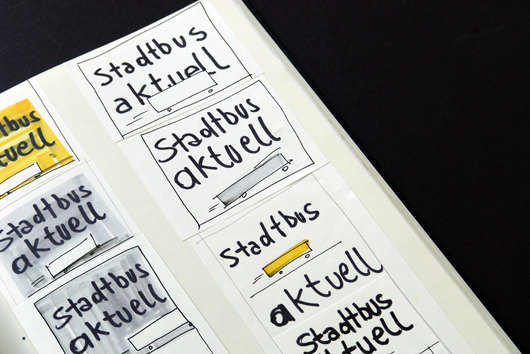 Stadtbus
aktuell
Stadtbus
aktuell
Stadtbus
aktuell
Stadtbus
aktuell
tbus
tuell
Stadtbus
aktuell
Stadtbus
aktuell